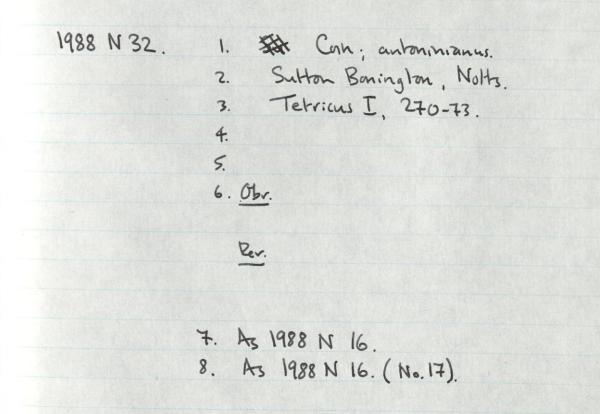 1988 N 32. 1. Coin; antoninianus.
2. Sutton Bonington, Notts.
3. Tetricus I, 270-73.
4.
5.
6. Obv.
Rev.
7. As 1988 N 16.
8. As 1988 N 16. (No. 17).